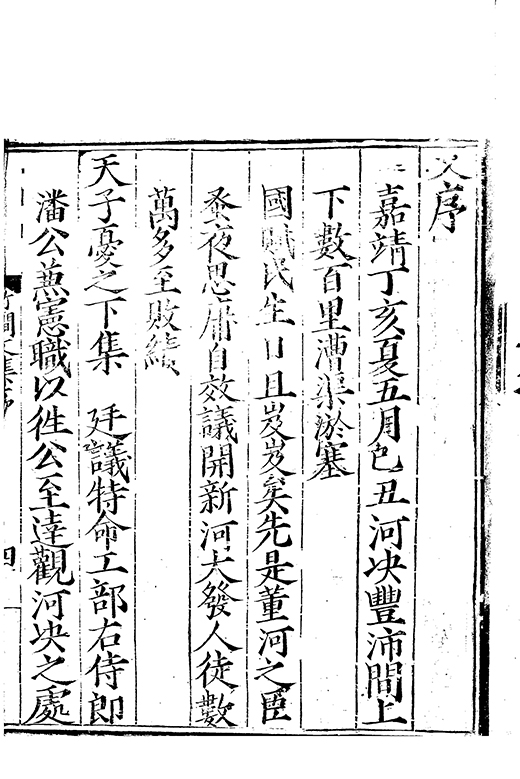 序
嘉靖丁亥夏五月巳丑河决豐沛間上
下數百里漕渠淤塞
國賦民生日且岌岌矣先是董河之臣
蚤夜思庸自效議開新河大發人徒數
萬多至敗績
天子憂之下集　廷議特命工部右侍郎
潘公蒹憲職以徃公至達觀河决之處
竹澗文集序　四